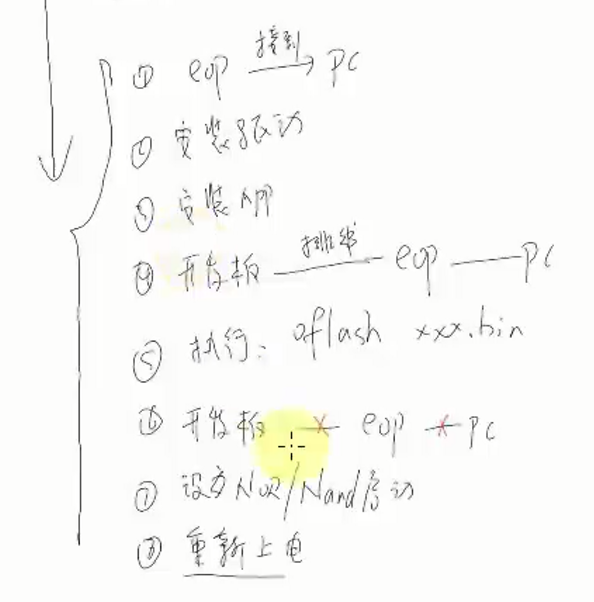 ① eop 接到→ PC
② 安装驱动
③ 安装APP
④ 开发板 —排线— eop — PC
⑤ 执行: oflash xxx.bin
⑥ 开发板 ✗ eop ✗ PC
⑦ 设为NOR/Nand启动
⑧ 重新上电